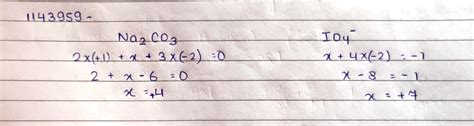 1143959-
Na₂CO₃
2x(+1) + x + 3x(-2) = 0
2 + x - 6 = 0
x = +4
IO₄⁻
x + 4x(-2) = -1
x - 8 = -1
x = +7